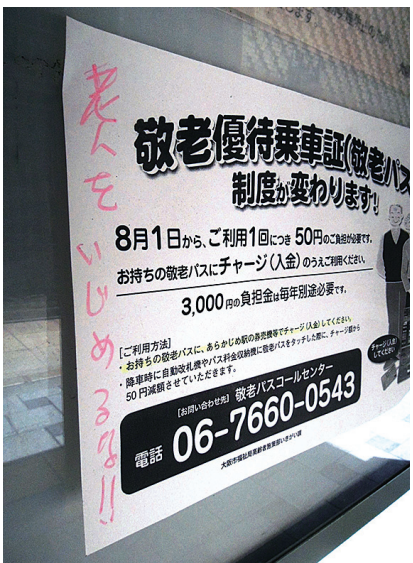 老人をいじめるな!!
敬老優待乗車証(敬老パス
制度が変わります!
8月1日から、ご利用1回につき 50円のご負担が必要です。
お持ちの敬老パスにチャージ(入金)のうえご利用ください。
3,000円の負担金は毎年別途必要です。
[ご利用方法]
・お持ちの敬老パスに、あらかじめ駅の券売機等でチャージ(入金)してください。
・降車時に自動改札機やバス料金収納機に敬老パスをタッチした際に、チャージ額から
50円減額させていただきます。
チャージ(入金)
してください
[お問い合わせ先] 敬老パスコールセンター
電話 06-7660-0543
大阪市福祉局高齢者施策部いきがい課